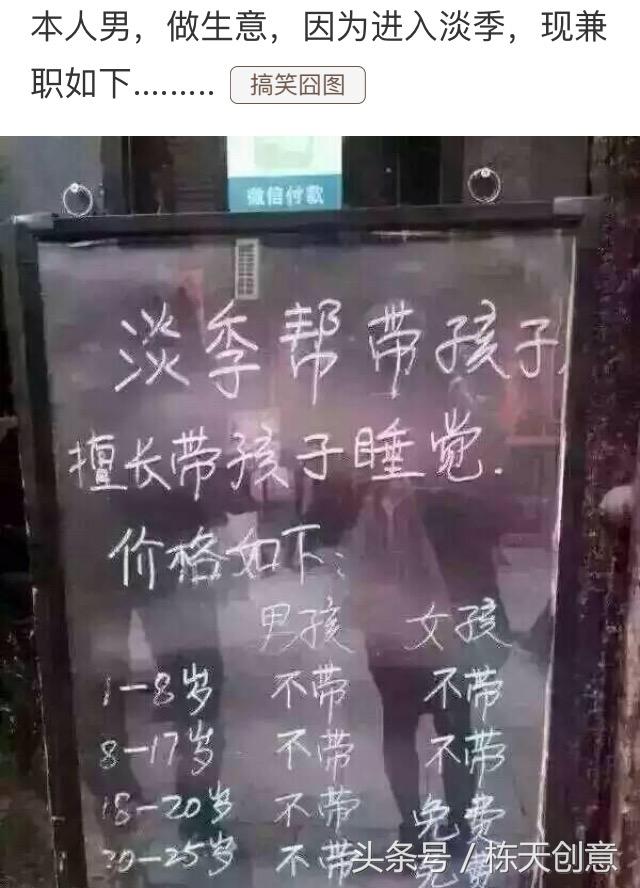 本人男，做生意，因为进入淡季，现兼
职如下......... 搞笑囧图
微信付款
淡季帮带孩子，
擅长带孩子睡觉.
价格如下：
男孩 女孩
1-8岁 不带 不带
8-17岁 不带 不带
18-20岁 不带 免费
20-25岁 不带 免费
头条号 / 栋天创意